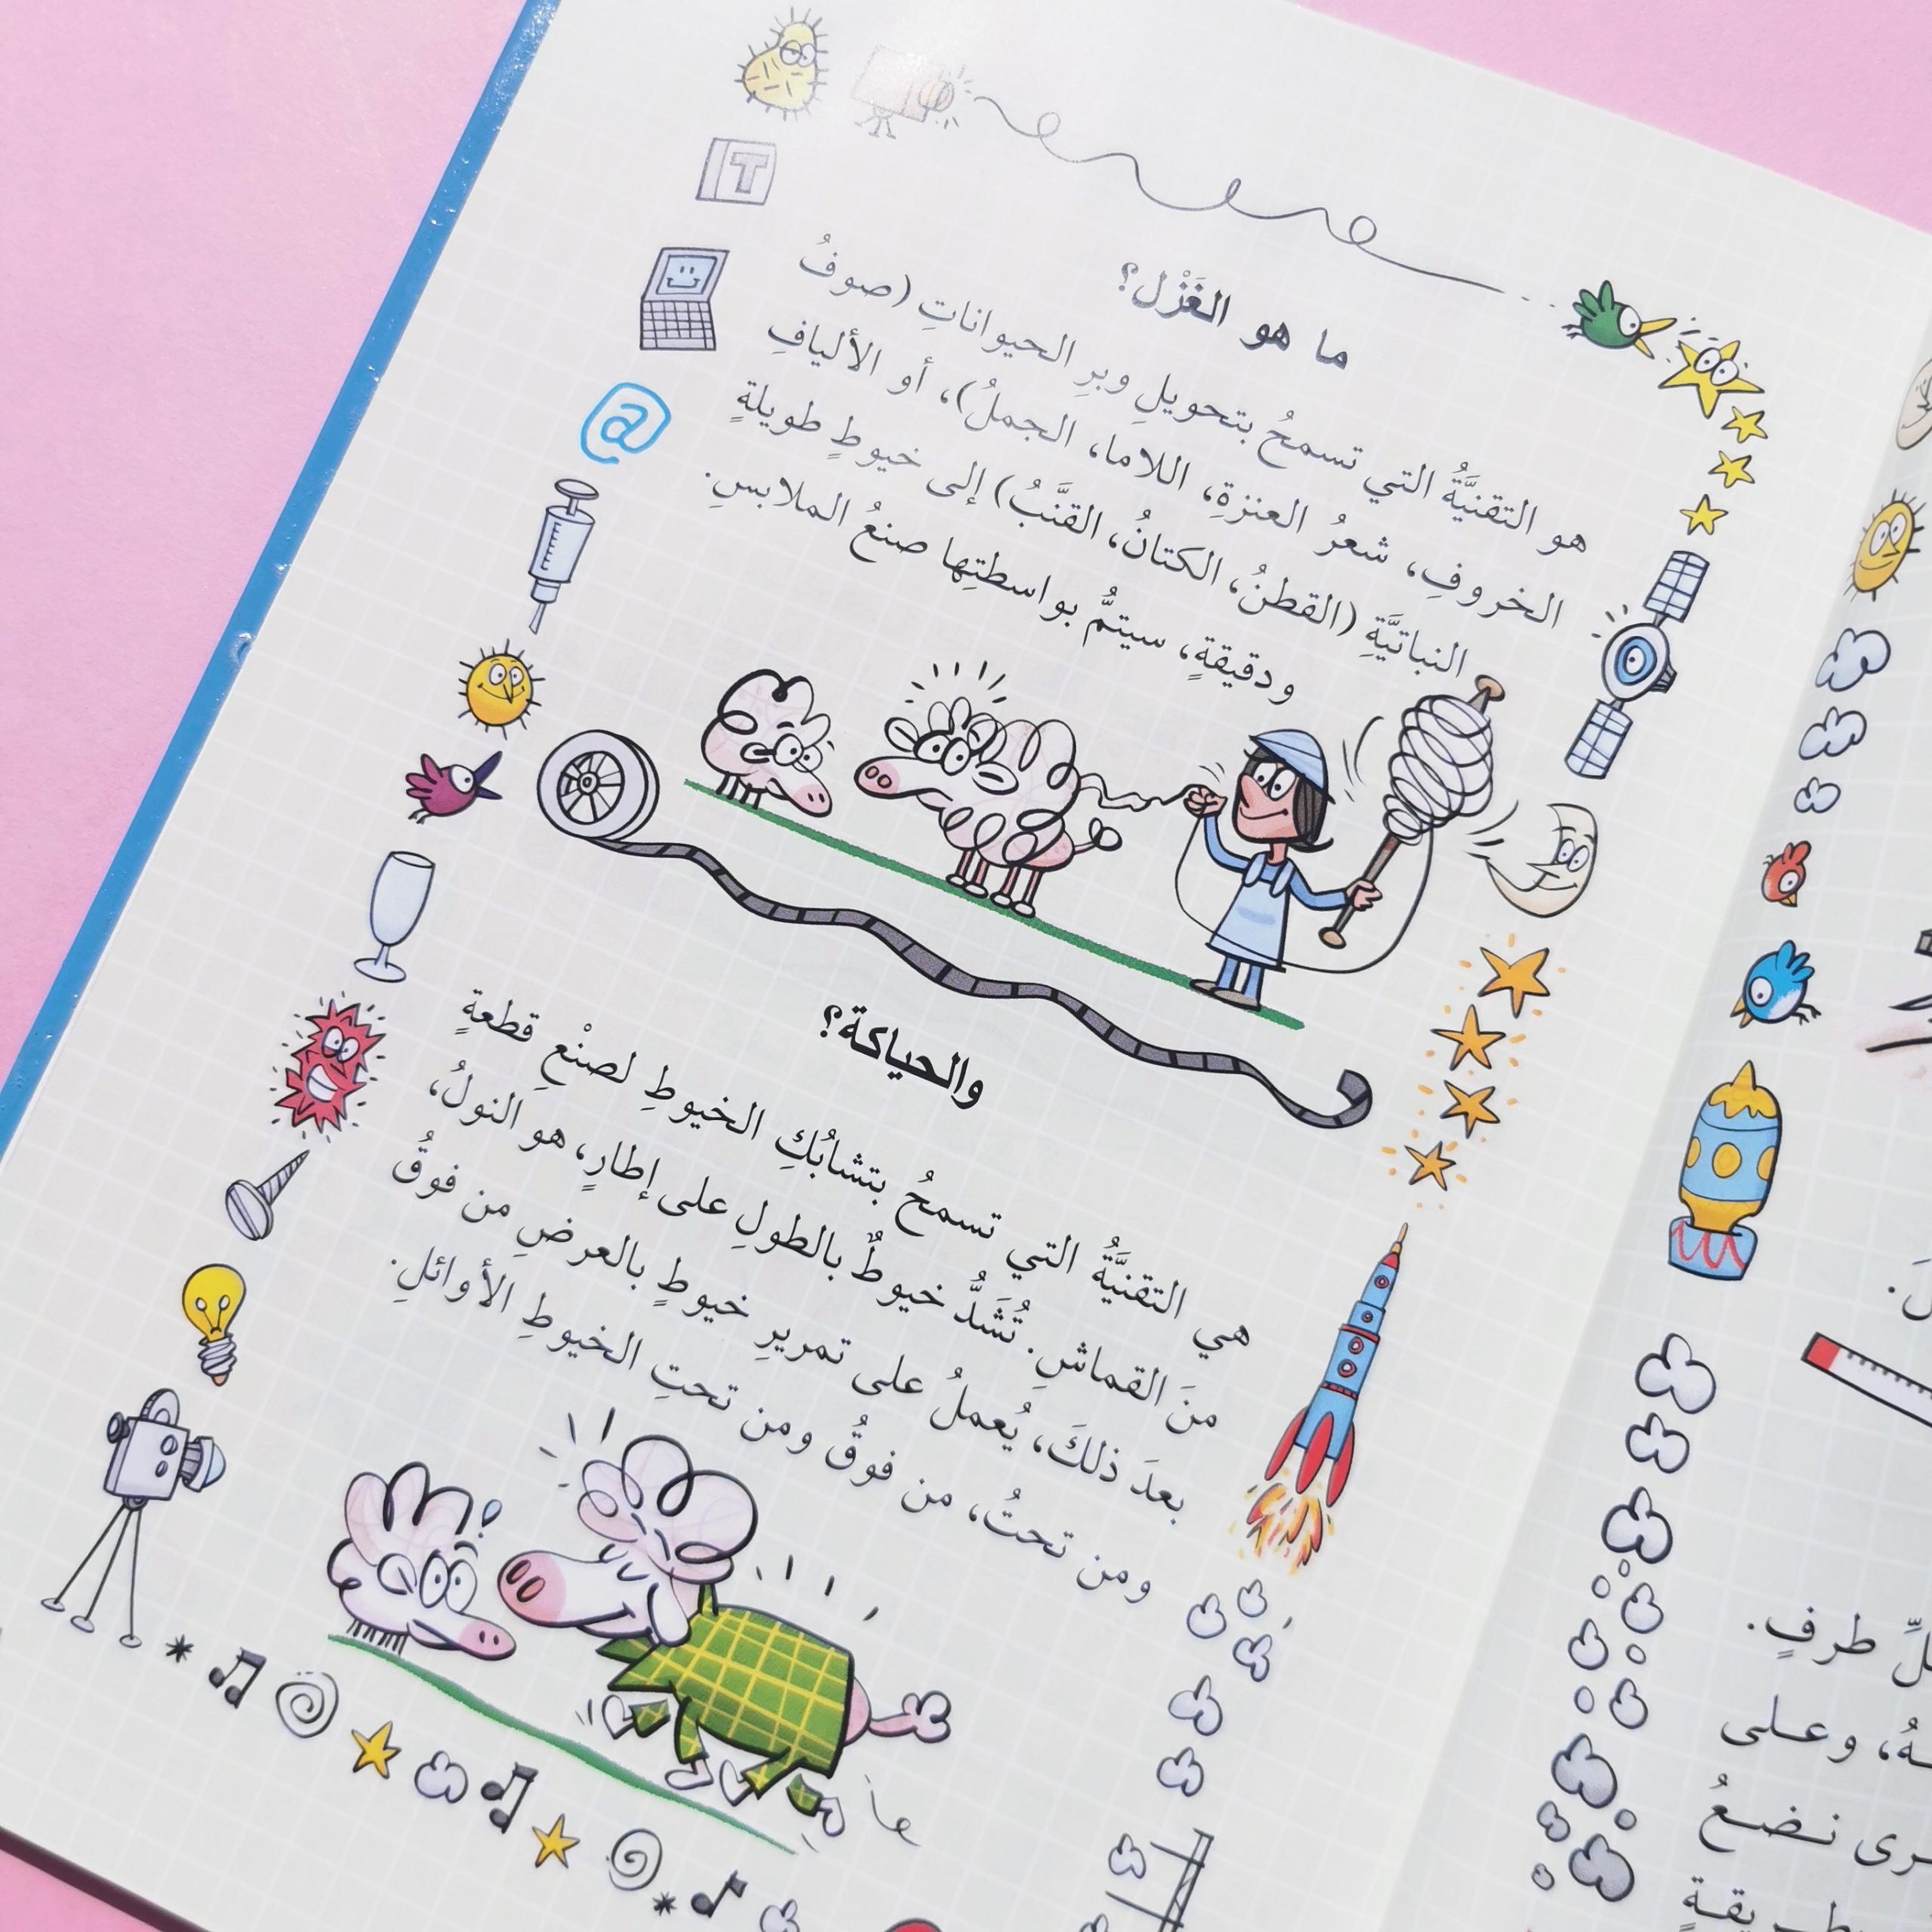 T
@
ما هو الغَزْل؟
هو التقنيَّةُ التي تسمحُ بتحويلِ وبرِ الحيواناتِ (صوفُ
الخروفِ، شعرُ العنزةِ، اللاما، الجملُ)، أو الأليافِ
النباتيَّةِ (القطنُ، الكتانُ، القنَّبُ) إلى خيوطٍ طويلةٍ
ودقيقةٍ، سيتمُّ بواسطتِها صنعُ الملابسِ.
والحياكة؟
هي التقنيَّةُ التي تسمحُ بتشابُكِ الخيوطِ لصنْعِ قطعةٍ
منَ القماشِ. تُشَدُّ خيوطٌ بالطولِ على إطارٍ، هو النولُ،
بعدَ ذلكَ، يُعملُ على تمريرِ خيوطٍ بالعرضِ من فوقُ
ومن تحتُ، من فوقُ ومن تحتِ الخيوطِ الأوائلِ.
طرفٍ.
وعلى
نضعُ